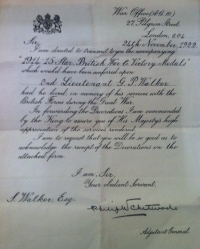 War Office (A.G.10)
27, Pilgrim Street,
London, E.C.4
24th November, 1922.
Sir,
I am directed to transmit to you the accompanying
"1914-15 Star, British War & Victory Medals"
which would have been conferred upon
2nd Lieutenant G. P. Walker
had he lived, in memory of his services with the
British Forces during the Great War.
In forwarding the Decorations I am commanded
by the King to assure you of His Majesty's high
appreciation of the services rendered.
I am to request that you will be so good as to
acknowledge the receipt of the Decorations on the
attached form.
I am, Sir,
Your obedient Servant,
Walker, Esq.
Adjutant General